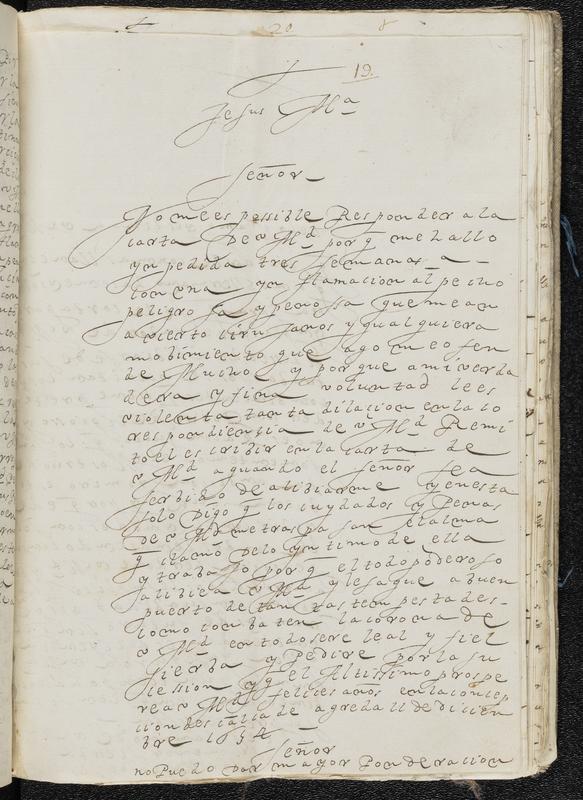 20 8
19.
Jesus Mª
Señor
No me es possible Responder a la
carta De v Md por q me hallo
ynpedida tres semanas a
con una ynflamacion al pecho
peligrosa y penossa que me an
avierto cirujanos y qualquiera
mobimiento que ago me ofen
de Mucho y porque a mi verda
dera y fina voluntad le es
violenta tanta dilacion en la co
respondiencia de v Md Remi
to el escribir en la carta de
v Md a quando el señor sea
serbido de alibiarme y en esta
solo Digo q los cuydados y Penas
De v Md me traspasan el alma
q clamo De lo yntimo de ella
y trabajo por q el todopoderoso
alibie a v Md y le saque a buen
puerto de tan tas tempestades
como conbaten la corona De
v Md en todo sere leal y fiel
sierba y Pedire por la su
cession y q el Altissimo prospe
re a v Md felices anos en la concep
cion des calca de agreda 11 de Dicien
bre 1654
Señor
no Puedo Dar mayor Ponderacion